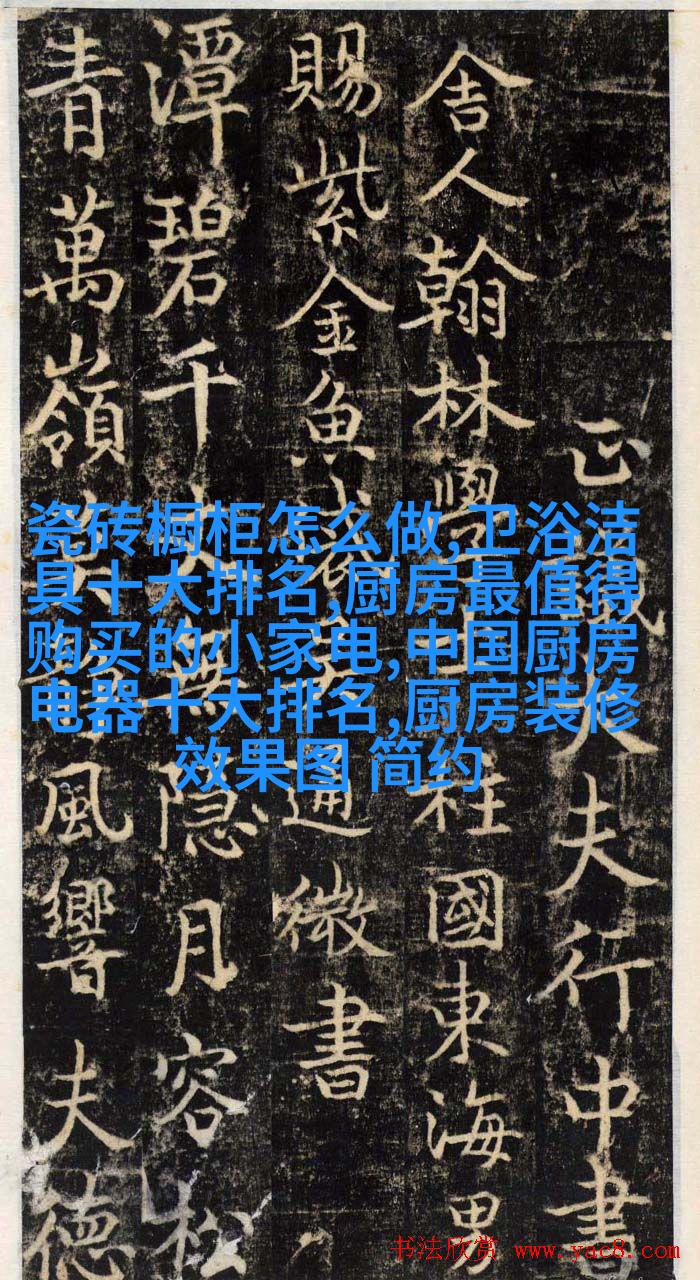 正議大夫行中書
舍人翰林學柱國東海男
賜紫金魚袋通微書
潭碧千丈無隐月容松
青萬嶺風響夫德
瓷砖橱柜怎么做,卫浴洁
具十大排名,厨房最值得
购买的小家电,中国厨房
电器十大排名,厨房装修
效果图 简约
书法欣赏 www.yac8.com